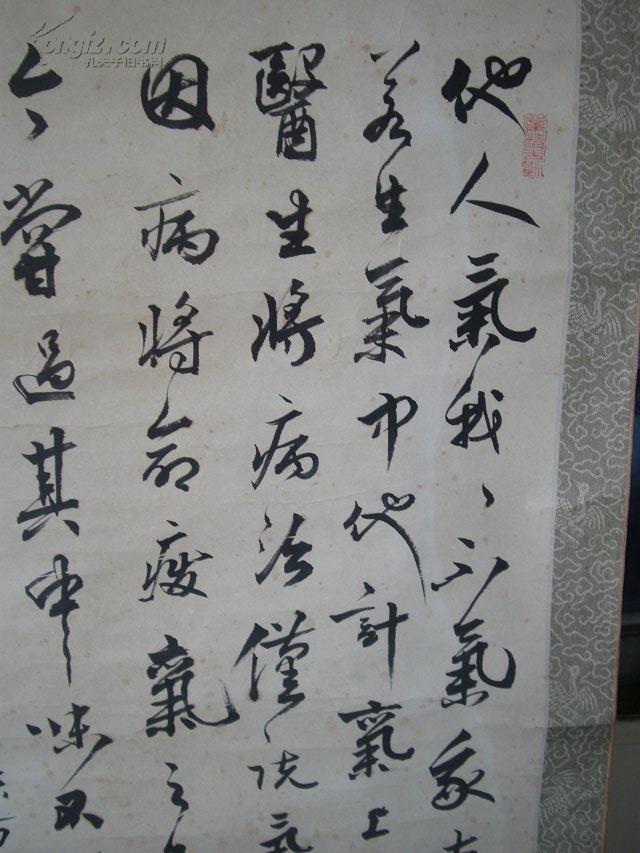 他人氣我々不氣我
若生氣中他計氣上
醫生將病治僅說氣
因病將命廢氣之
今々嘗過其中味不
Kongfz.com
孔夫子旧书网